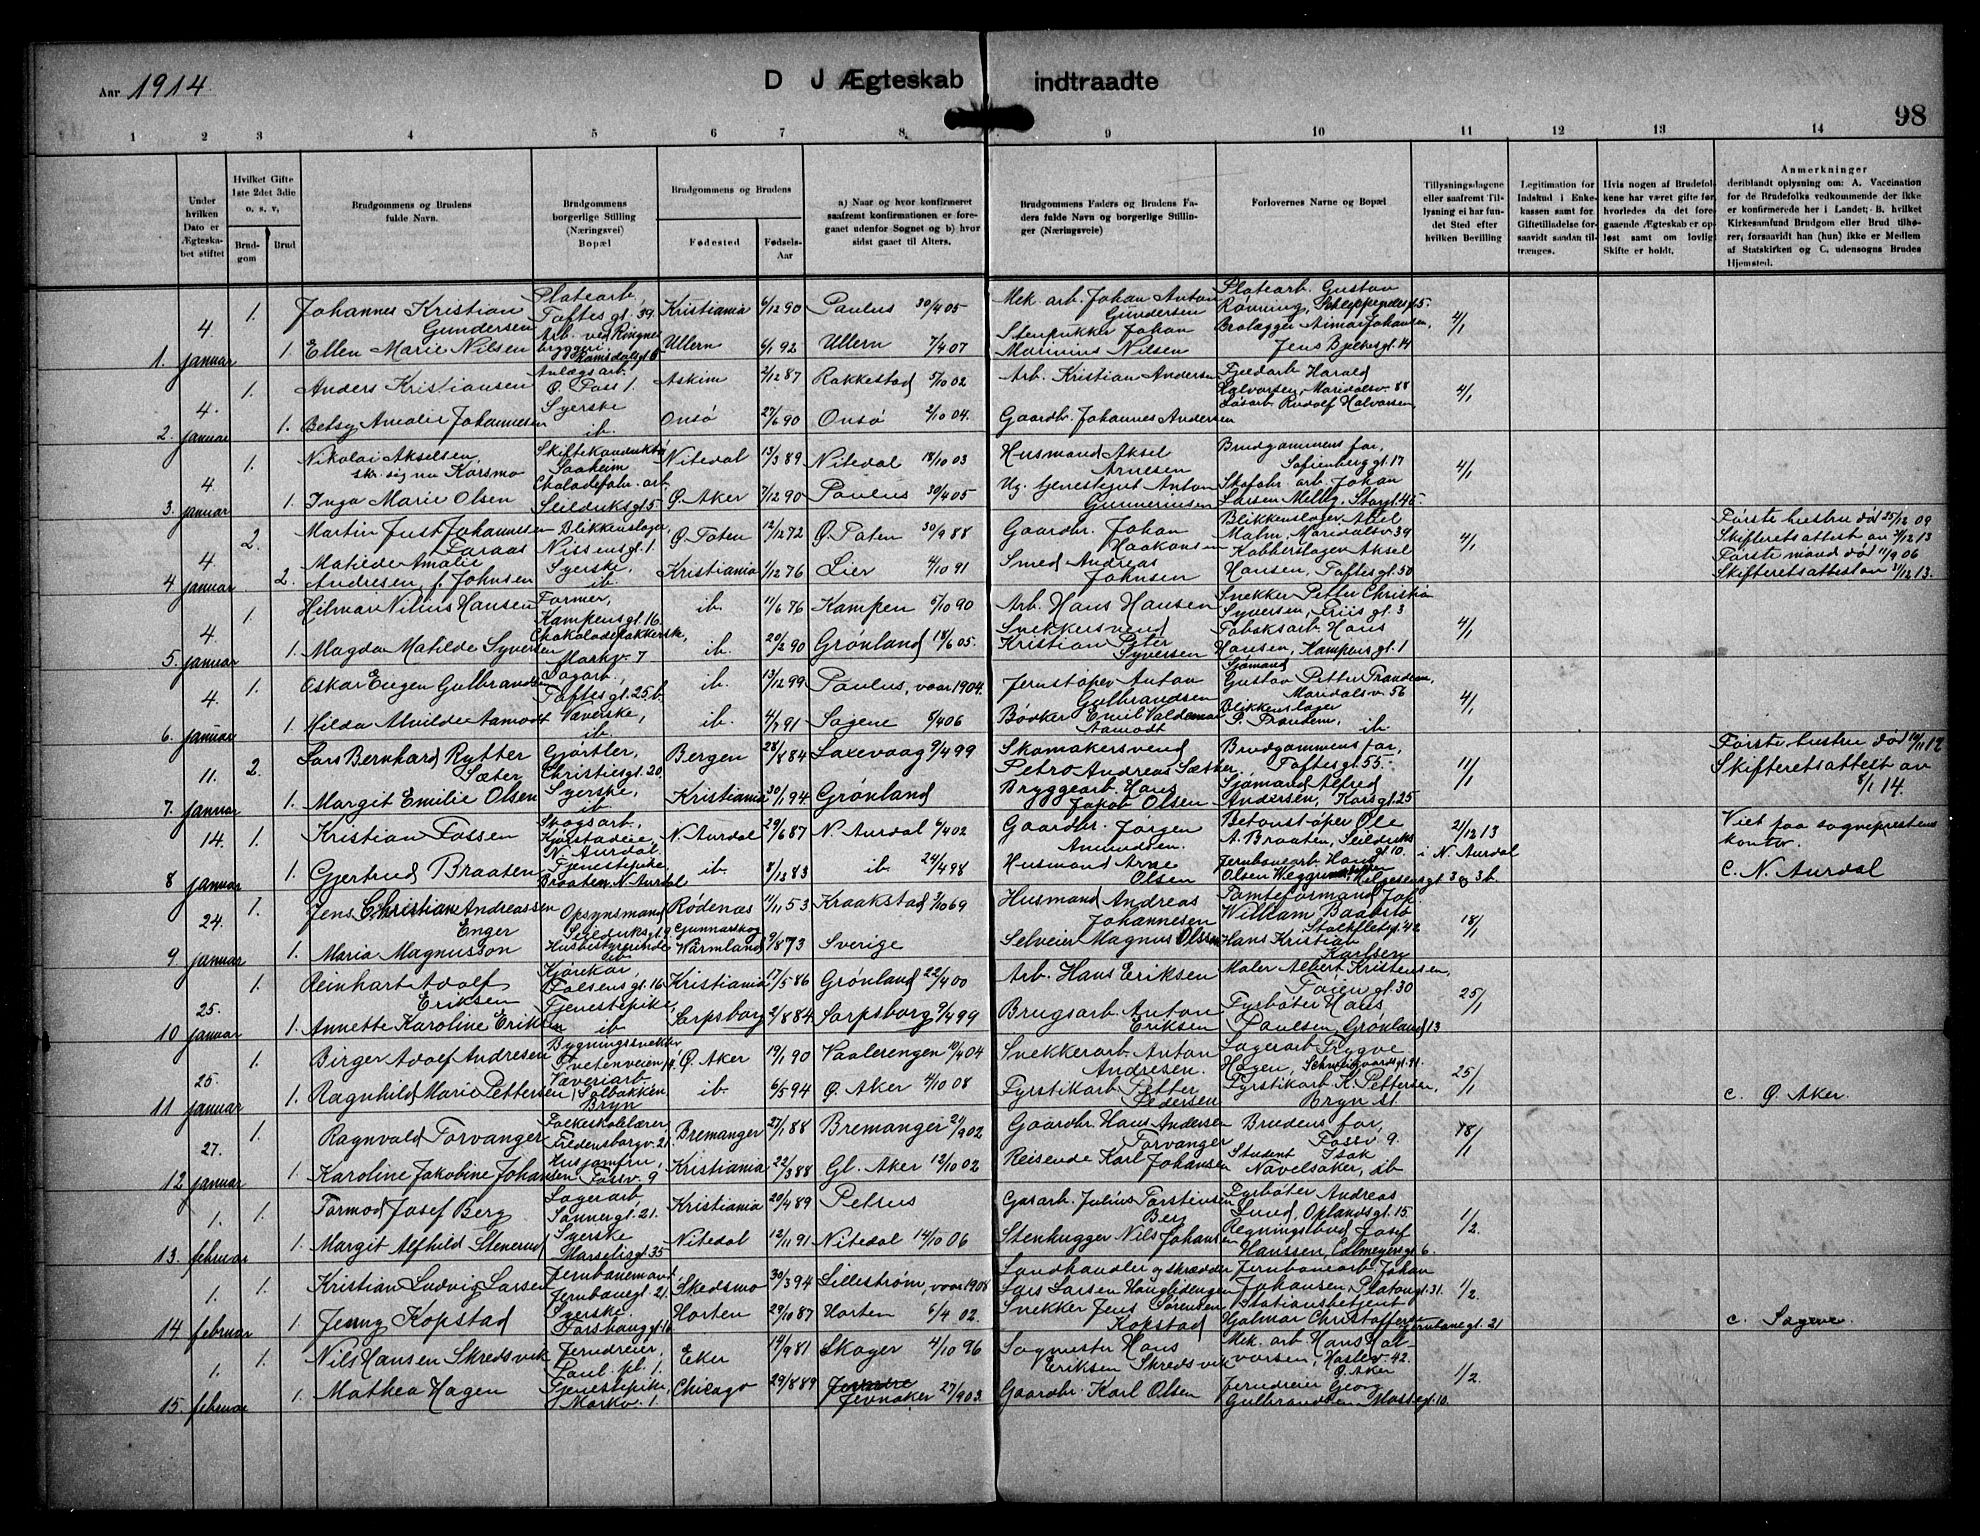 Aar 1914
D J Ægteskab indtraadte
98
1 2 3 4 5 6 7 8 9 10 11 12 13 14
Under hvilken Dato er Ægteskabet stiftet
Hvilket Gifte 1ste 2det 3die o. s. v.
Brudgom
Brud
Brudgommens og Brudens fulde Navn.
Brudgommens borgerlige Stilling (Næringsvei) Bopæl
Brudgommens og Brudens
Fødested
Fødsels-Aar
a) Naar og hvor konfirmeret saafremt konfirmationen er foregaaet udenfor Sognet og b) hvor sidst gaaet til Alters.
Brudgommens Faders og Brudens Faders fulde Navn og borgerlige Stillinger (Næringsveie)
Forlovernes Navne og Bopæl
Tillysningsdagene eller saafremt Tillysning ei har fundet Sted efter hvilken Bevilling
Legitimation for Indskud i Enkekassen samt for Giftetilladelse forsaavidt saadan tiltrænges.
Hvis nogen af Brudefolkene har været gifte før, hvorledes da det foregaaende Ægteskab er opløst samt om lovligt Skifte er holdt.
Anmerkninger deriblandt oplysning om: A. Vaccination for de Brudefolks vedkommende der ikke er konfirmerede her i Landet; B. hvilket Kirkesamfund Brudgom eller Brud tilhører, forsaavidt han (hun) ikke er Medlem af Statskirken og C. udensogns Brudes Hjemsted.
1. 4. januar
1. Johannes Kristian Gundersen Platearb, Toftes gt. 39. Kristiania 6/12 90 Paulus 30/4 05 Mek. arb. Johan Anton Gundersen Platearb. Gustav Rønning, Schleppegrels gt. 5. 4/1
1. Ellen Marie Nilsen Arb. ved Ringnes bryggeri, Ullern 6/1 92 Ullern 7/4 07 Stenpukker Johan Marinius Nilsen Brolægger Johansen, Jens Bjelkes gt. 14
2. 4. januar
1. Anders Kristiansen Anlægsarb. Ø. Foss 1. Askim 2/12 87 Rakkestad 5/10 02 Arb. Kristian Andersen Harald Halvorsen, Maridalsv. 88 4/1
1. Betsy Amalie Johannesen Syerske ib. Onsø 27/6 90 Onsø 2/10 04. Gaardbr. Johannes Andersen Løsarb Rudolf Halvorsen,
3. 4. januar
1. Nikolai Akselsen, skr. sig nu Karsmo Skiftekonduktør Saaheim Nitedal 13/3 89 Nitedal 18/10 03 Husmand Aksel Arnesen Brudgommens far, Sofienberg gt. 17 4/1
1. Inga Marie Olsen Chokoladefabr. arb. Seilduks gt. 5 Ø. Aker 7/12 90 Paulus 30/4 05 Ug. Anton Gunneriusen arb. Johan Larsen Storgt. 45.
4. 4. januar
2. Martin Just Johannesen Faraas Blikkenslager, Nissens gt. 1. Ø. Toten 12/12 72 Ø. Toten 30/9 88 Gaardbr. Johan Haakonsen Blikkenslager Abel Malm, Maridalsv 39 4/1 Første hustru død 25/12 09 Skifteretsattest av 2/12 13
2. Matilde Amalie Andresen, f. Johnsen Syerske, ib Kristiania 1/12 76 Lier 4/10 91 Smed Andreas Johnsen Kobberslager Aksel Hansen, Toftes gt. 50 Første mand død 11/9 06 Skifteretsattest av 2/12 13.
5. 4. januar
1. Hilmar Nilius Hansen Former, Kampens gt. 16. ib. 11/6 76 Kampen 5/10 90 Arb. Hans Hansen Snekker Petter Christian Syversen, Friis gt. 3 4/1
1. Magda Matilde Syversen Chokoladepakkerske, Markv. 7 ib. 20/2 90 Grønland 18/6 05. Snekkersvend Kristian Peter Syversen Tobaksarb. Hans Hansen, Kampens gt. 1
6. 4. januar
1. Oskar Eugen Gulbrandsen Sagarb., Toftes gt. 25 b. ib. 13/12 99 Paulus, vaar 1904. Jernstøper Anton Gulbrandsen Sjømand Gustav Petter Trandem, Maridalsv. 56 4/1
1. Hilda Alvilde Aamodt Væverske, ib ib. 4/7 91 Sagene 8/4 06 Bødker Emil Valdemar Aamodt Blikkenslager P. Trandem, ib.
7. 11. januar
2. Lars Bernhard Rytter Sæter Gjørtler, Christies gt. 20, Bergen 28/8 84 Laxevaag 9/4 99 Skomakersvend Petro Andreas Sæther Brudgommens far, Toftes gt. 55.- 11/1 Første hustru død 10/11 12 Skifteretsattest av 8/1 14.
1. Margit Emilie Olsen Syerske, ib. Kristiania 30/1 94 Grønland Bryggearb. Hans Jakob Olsen Sjømand Alfred Andersen, Kors gt. 25
8 14. januar
1. Kristian Fossen Skogsarb, N. Aurdal N. Aurdal 29/6 87 N. Aurdal 6/4 02 Gaardbr. Jørgen Amundsen. Betonstøper Ole A. Braaten, Seilduks gt. 10. 21/12 13 i N. Aurdal Viet paa sogneprestens kontor.
1. Gjertrud Braaten Tjenestepike Braaten, N. Aurdal ib. 8/12 83 ib. 24/4 98 Husmand Arne Olsen Jernbanearb. Hans Olsen Helgesens gt 3 b. C. N. Aurdal
9 24. januar
1. Jens Christian Andreassen Enger Opsynsmand Seilduks gt. 9 Rødenæs 11/11 53 Kraakstad 3/10 69 Husmand Andreas Johannesen Tomteformand Joh. William Baabstø Stolkflets gt. 42 18/1
1. Maria Magnusson Husbestyrerinde ib Gunnarskog Wärmland 9/8 73 Sverige Selveier Magnus Olsson Hans Kristian Karlsen
10 25. januar
1. Reinhart Adolf Eriksen Kjørekar, Falsens gt. 16 Kristiania 17/5 86 Grønland 22/4 00 Arb. Hans Eriksen Maler Albert Kristensen, Tøien gt. 30 25/1
1. Annette Karoline Eriksen Tjenestepike, ib Sarpsborg 2/8 84 Sarpsborg 9/4 99 Brugsarb. Anton Eriksen Fyrbøter Hans Paulsen, Grønland 13
11 25. januar
1. Birger Adolf Andresen Bygningssnekker, Tvetenveien 9. Ø. Aker 19/1 90 Vaalerengen 10/4 04 Snekkerarb. Anton Andresen. Lagerarb Trygve Hagen, Schweigaards gt. 91. 25/1
1. Ragnhild Marie Pettersen Væveriarb. Solbakken, Bryn ib. 6/5 94 Ø. Aker 4/10 08 Fyrstikarb. Petter Pedersen Fyrstikarb K. Pettersen, Bryn st. c. Ø. Aker.
12 27. januar
1. Ragnvald Forvanger Folkeskolelærer Fredensborgv. 21. Bremanger 27/1 88 Bremanger 21/9 02 Gaardbr. Hans Andersen Forvanger Brudens far, Fossv 9. 18/1
1. Karoline Jakobine Johansen Husjomfru, Fossv. 9 Kristiania 22/3 88 Gl. Aker 12/10 02 Reisende Karl Johansen Student Isak Navelsaker, ib
13. 1. februar
1. Tormod Josef Berg Lagerarb, Sanner gt. 21. Kristiania 20/4 89 Petrus Gasarb. Julius Torstensen Berg Fyrbøter Andreas Lund, Oplands gt. 15. 1/2.
1. Margit Alfhild Stenerud Syerske Marselis gt. 35 Nitedal 12/11 91 Nitedal 14/10 06 Stenhugger Nils Johansen Regningsbud Josef Hanssen, Calmeyers gt 6.
14. 1. februar
1. Kristian Ludvig Larsen Jernbanemand Jernbane gt. 21. Skedsmo 30/3 94 Lillestrøm, vaar 1908 Landhandler og skrædder Lars Larsen Haugliengen Jernbanearb. Johan Johansen, Platous gt. 31. 1/2.
1. Jenny Kopstad Syerske Horten 29/10 87 Horten 6/4 02. Snekker Jens Sørensen Kopstad Stationsbetjent Hjalmar Christoffersen Jernbane gt. 21 c. Sagene.
15. 1. februar
1. Nils Hansen Skredsvik Jerndreier, Paul. pl. 1. Eker 14/9 81 Skoger 4/10 96 Sagmester Hans Eriksen Skredsvik Mek. arb Hans Halvorsen, Haslev. 42. Ø Aker 1/2.
1. Mathea Hagen Tjenestepike, Markv. 1. Chicago 29/8 89 Jevnaker 27/9 03. Gaardbr. Karl Olsen Jerndreier Georg Gulbrandsen gt. 10.